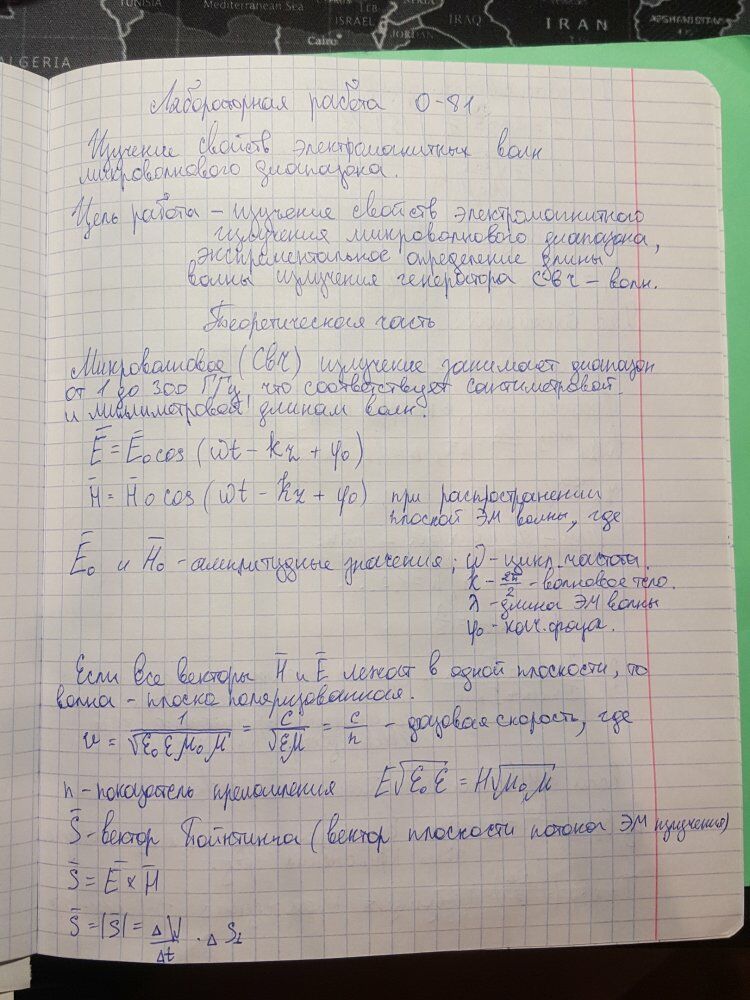 TUNISIA
Mediterranean Sea
LEB
ISRAEL
Cairo
JORDAN
IRAQ
IRAN
AFGHANISTAN
ALGERIA
Лабораторная работа О-81
Изучение свойств электромагнитных волн
микроволнового диапазона.
Цель работа – изучение свойств электромагнитного
излучения микроволнового диапазона,
экспрементальное определение длины
волны излучения генератора СВЧ – волн.
Теоретическая часть
Микроволновое (СВЧ) излучение занимает диапазон
от 1 до 300 ГГц, что соответствует сантиметровой
и миллиметровой длинам волн.
E̅ = E̅₀ cos (ωt – kz + φ₀)
H̅ = H̅₀ cos (ωt – kz + φ₀) при распространении
плоской ЭМ волны, где
E̅₀ и H̅₀ – амплитудные значения; ω – цикл. частота.
k – 2π/2 – волновое тело.
λ – длина ЭМ волны
φ₀ – нач. фаза.
Если все векторы H̅ и E̅ лежат в одной плоскости, то
волна – плоско поляризованная.
v = 1/√ε₀εμ₀μ = c/√εμ = c/n – фазовая скорость, где
n – показатель преломления E√ε₀ε = H√μ₀μ
S̅ – вектор Пойнтинга (вектор плоскости потока ЭМ излучения)
S̅ = E̅ × H̅
S̅ = |S̅| = ΔW/Δt · ΔS⊥